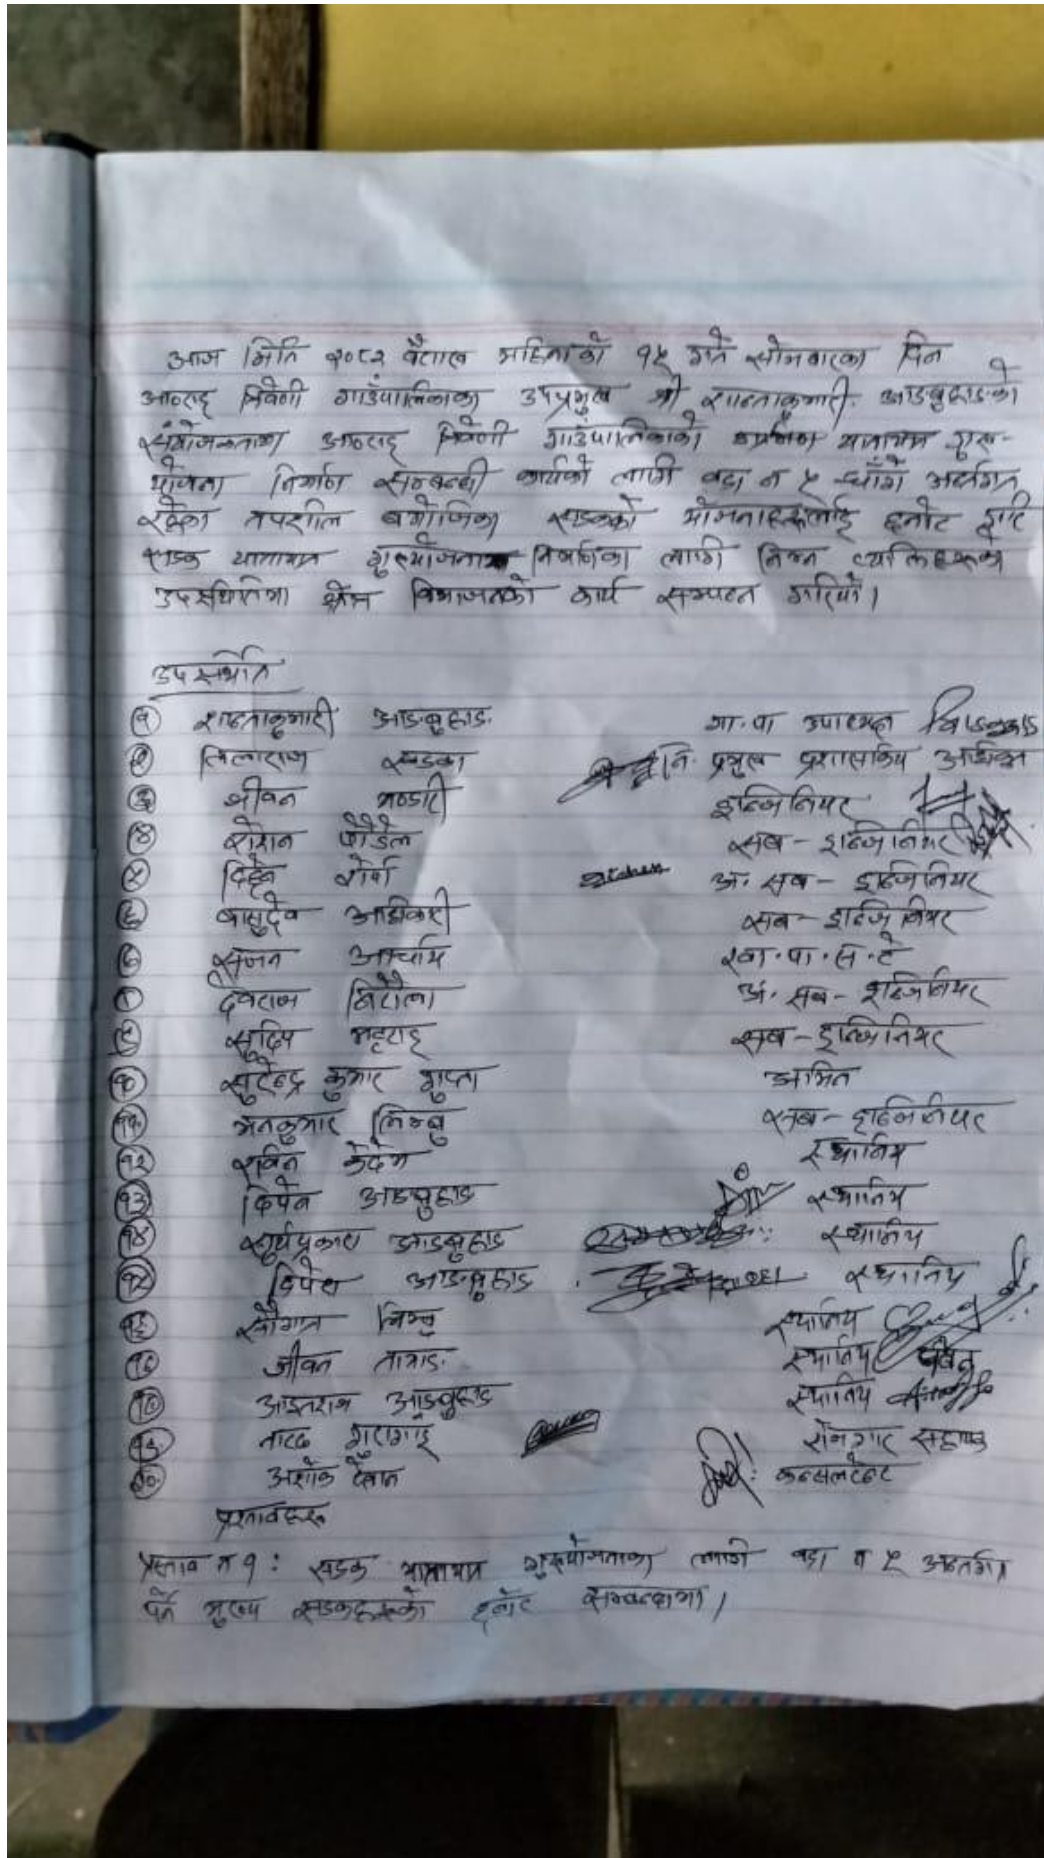 आज मिति २०८२ वैशाख महिनाको १५ गते सोमबारका दिन
आठराई त्रिवेणी गाउँपालिकाका उपप्रमुख श्री शान्ताकुमारी आङबुहाङको
संयोजकतामा आठराई त्रिवेणी गाउँपालिकाको यातायात गुरु-
योजना निर्माण सम्बन्धी कार्यको लागी वडा न ५ अर्न्तगत
रहेका तपशील बमोजिमका सडकको योजनाहरूलाई छनोट गरि
सडक यातायात गुरुयोजना निर्माणका लागी निम्न व्यक्तिहरूको
उपस्थितिमा क्षेत्र विभाजनको कार्य सम्पन्न गरियो।
उपस्थिति
१ शान्ताकुमारी आङबुहाङ गा.पा उपाध्यक्ष
२ तिलाराज खडका नि. प्रमुख प्रशासकिय अधिकृत
३ जीवन भण्डारी इन्जिनियर
४ रोशन पौडेल सब-इन्जिनियर
५ शेर्पा अ. सब-इन्जिनियर
६ बासुदेव अधिकारी सब-इन्जिनियर
७ सृजन आचार्य खा.पा.स.टे
८ देवराज सिटौला अ. सब-इन्जिनियर
९ सुदिप भट्टराई सब-इन्जिनियर
१० सुरेन्द्र कुमार गुप्ता अमिन
११ मनकुमार लिम्बु सब-इन्जिनियर
१२ रविन केदेम स्थानिय
१३ दिपेन आङबुहाङ स्थानिय
१४ सुर्यप्रकाश आङबुहाङ स्थानिय
१५ दिपेश आङबुहाङ स्थानिय
१६ सौगात लिम्बू स्थानिय
१७ जीवन तावाङ स्थानिय
१८ आइतराज आङबुहाङ स्थानिय
१९ नारद गुरागाई रोजगार सहायक
२० अशोक देवान कन्सल्टेन्ट
प्रस्तावहरू
प्रस्ताव न १: सडक यातायात गुरुयोजनाका लागी वडा न ५ अन्तर्गत
पर्ने मुख्य सडकहरूको छनोट सम्बन्धमा।